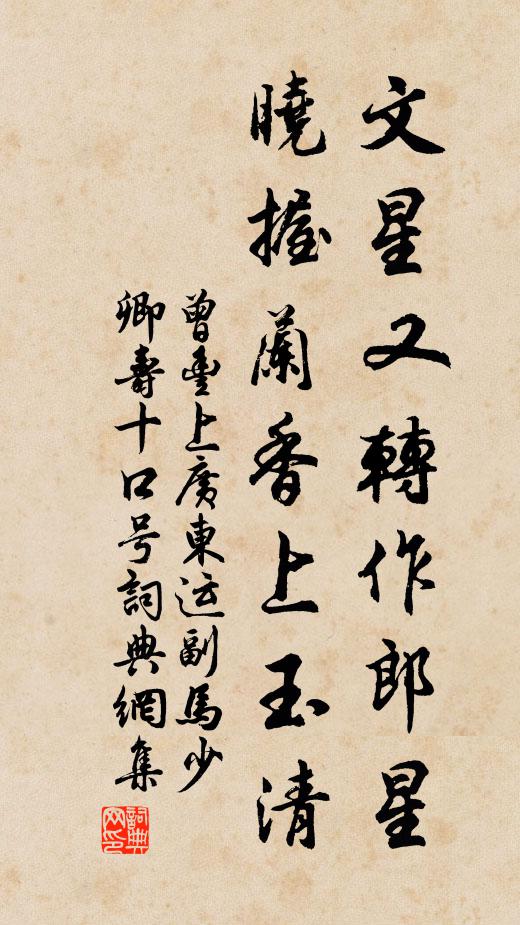 文星又轉作郎星
曉握蘭香上玉清
曾豐上廣東运副馬少
卿壽十口号詞典網集
詞典网印